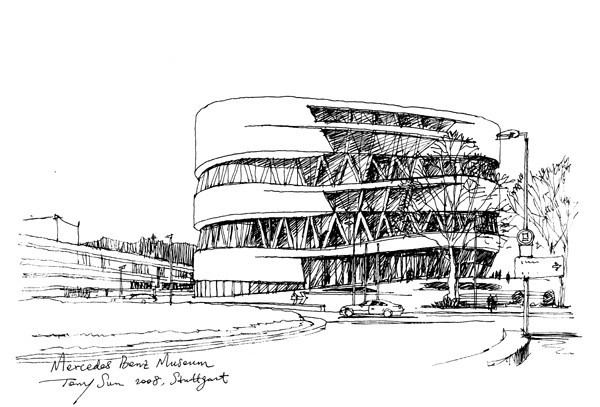 Mercedes Benz Museum
Tony Sun 2008, Stuttgart